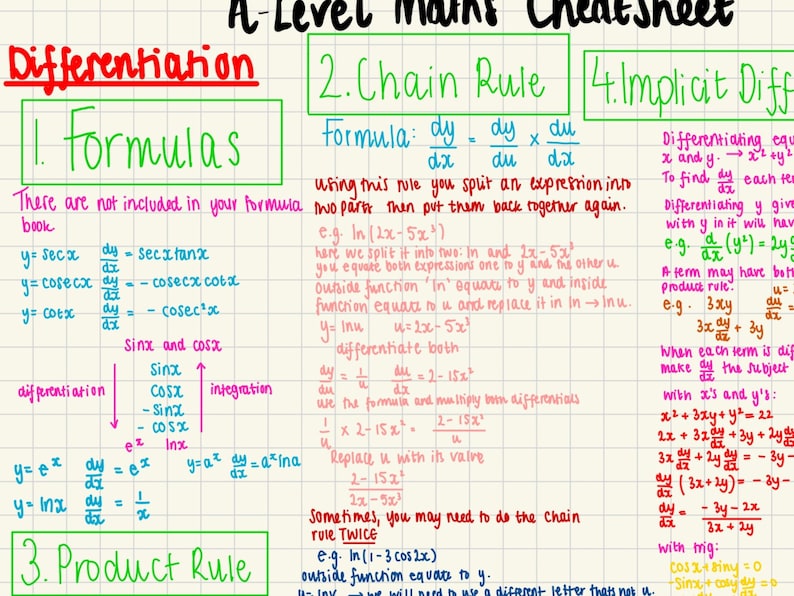 A-Level Maths Cheatsheet
Differentiation
1. Formulas
There are not included in your formula
book
y = secx dy/dx = secxtanx
y = cosecx dy/dx = - cosecxcotx
y = cotx dy/dx = - cosec²x
Sinx and cosx
differentiation
Sinx
Cosx
- Sinx
- Cosx
integration
e^x lnx
y = e^x dy/dx = e^x
y = a^x dy/dx = a^x lna
y = lnx dy/dx = 1/x
3. Product Rule
2. Chain Rule
Formula: dy/dx = dy/du × du/dx
Using this rule you split an expression into
two parts then put them back together again.
e.g. ln(2x - 5x³)
here we split it into two: ln and 2x - 5x³
you equate both expressions one to y and the other u
Outside function 'ln' equate to y and inside
function equate to u and replace it in ln → lnu.
y = lnu u = 2x - 5x³
differentiate both
dy/du = 1/u du/dx = 2 - 15x²
use the formula and multiply both differentials
1/u × 2 - 15x² = 2 - 15x²/u
Replace u with its value
2 - 15x²/2x - 5x³
Sometimes, you may need to do the chain
rule TWICE
e.g. ln(1 - 3cos2x)
outside function equate to y.
→ we will need to use a different letter thats not u.
4. Implicit Diff
Differentiating equ
x and y. → x² + y²
To find dy/dx each ter
Differentiating y give
with y in it will hav
e.g. d/dx (y²) = 2y
A term may have both
product rule.
u =
e.g. 3xy du/dx =
3x dy/dx + 3y
When each term is dif
make dy/dx the subject
with x's and y's:
x² + 3xy + y² = 22
2x + 3x dy/dx + 3y + 2y dy/dx
3x dy/dx + 2y dy/dx = - 3y -
dy/dx (3x + 2y) = - 3y -
dy/dx = - 3y - 2x/3x + 2y
with trig:
cosx + siny = 0
- Sinx + cosy dy/dx = 0